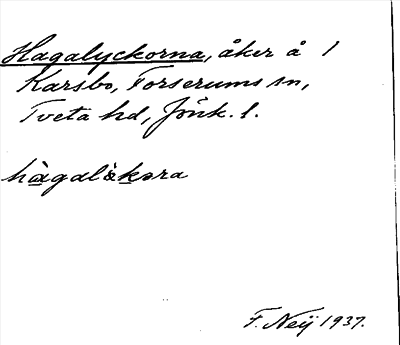 Hagalyckorna, åker å 1
Karsbo, Forserums sn,
Tveta hd, Jönk. l.
hàgalökəra
F. Neij 1937.